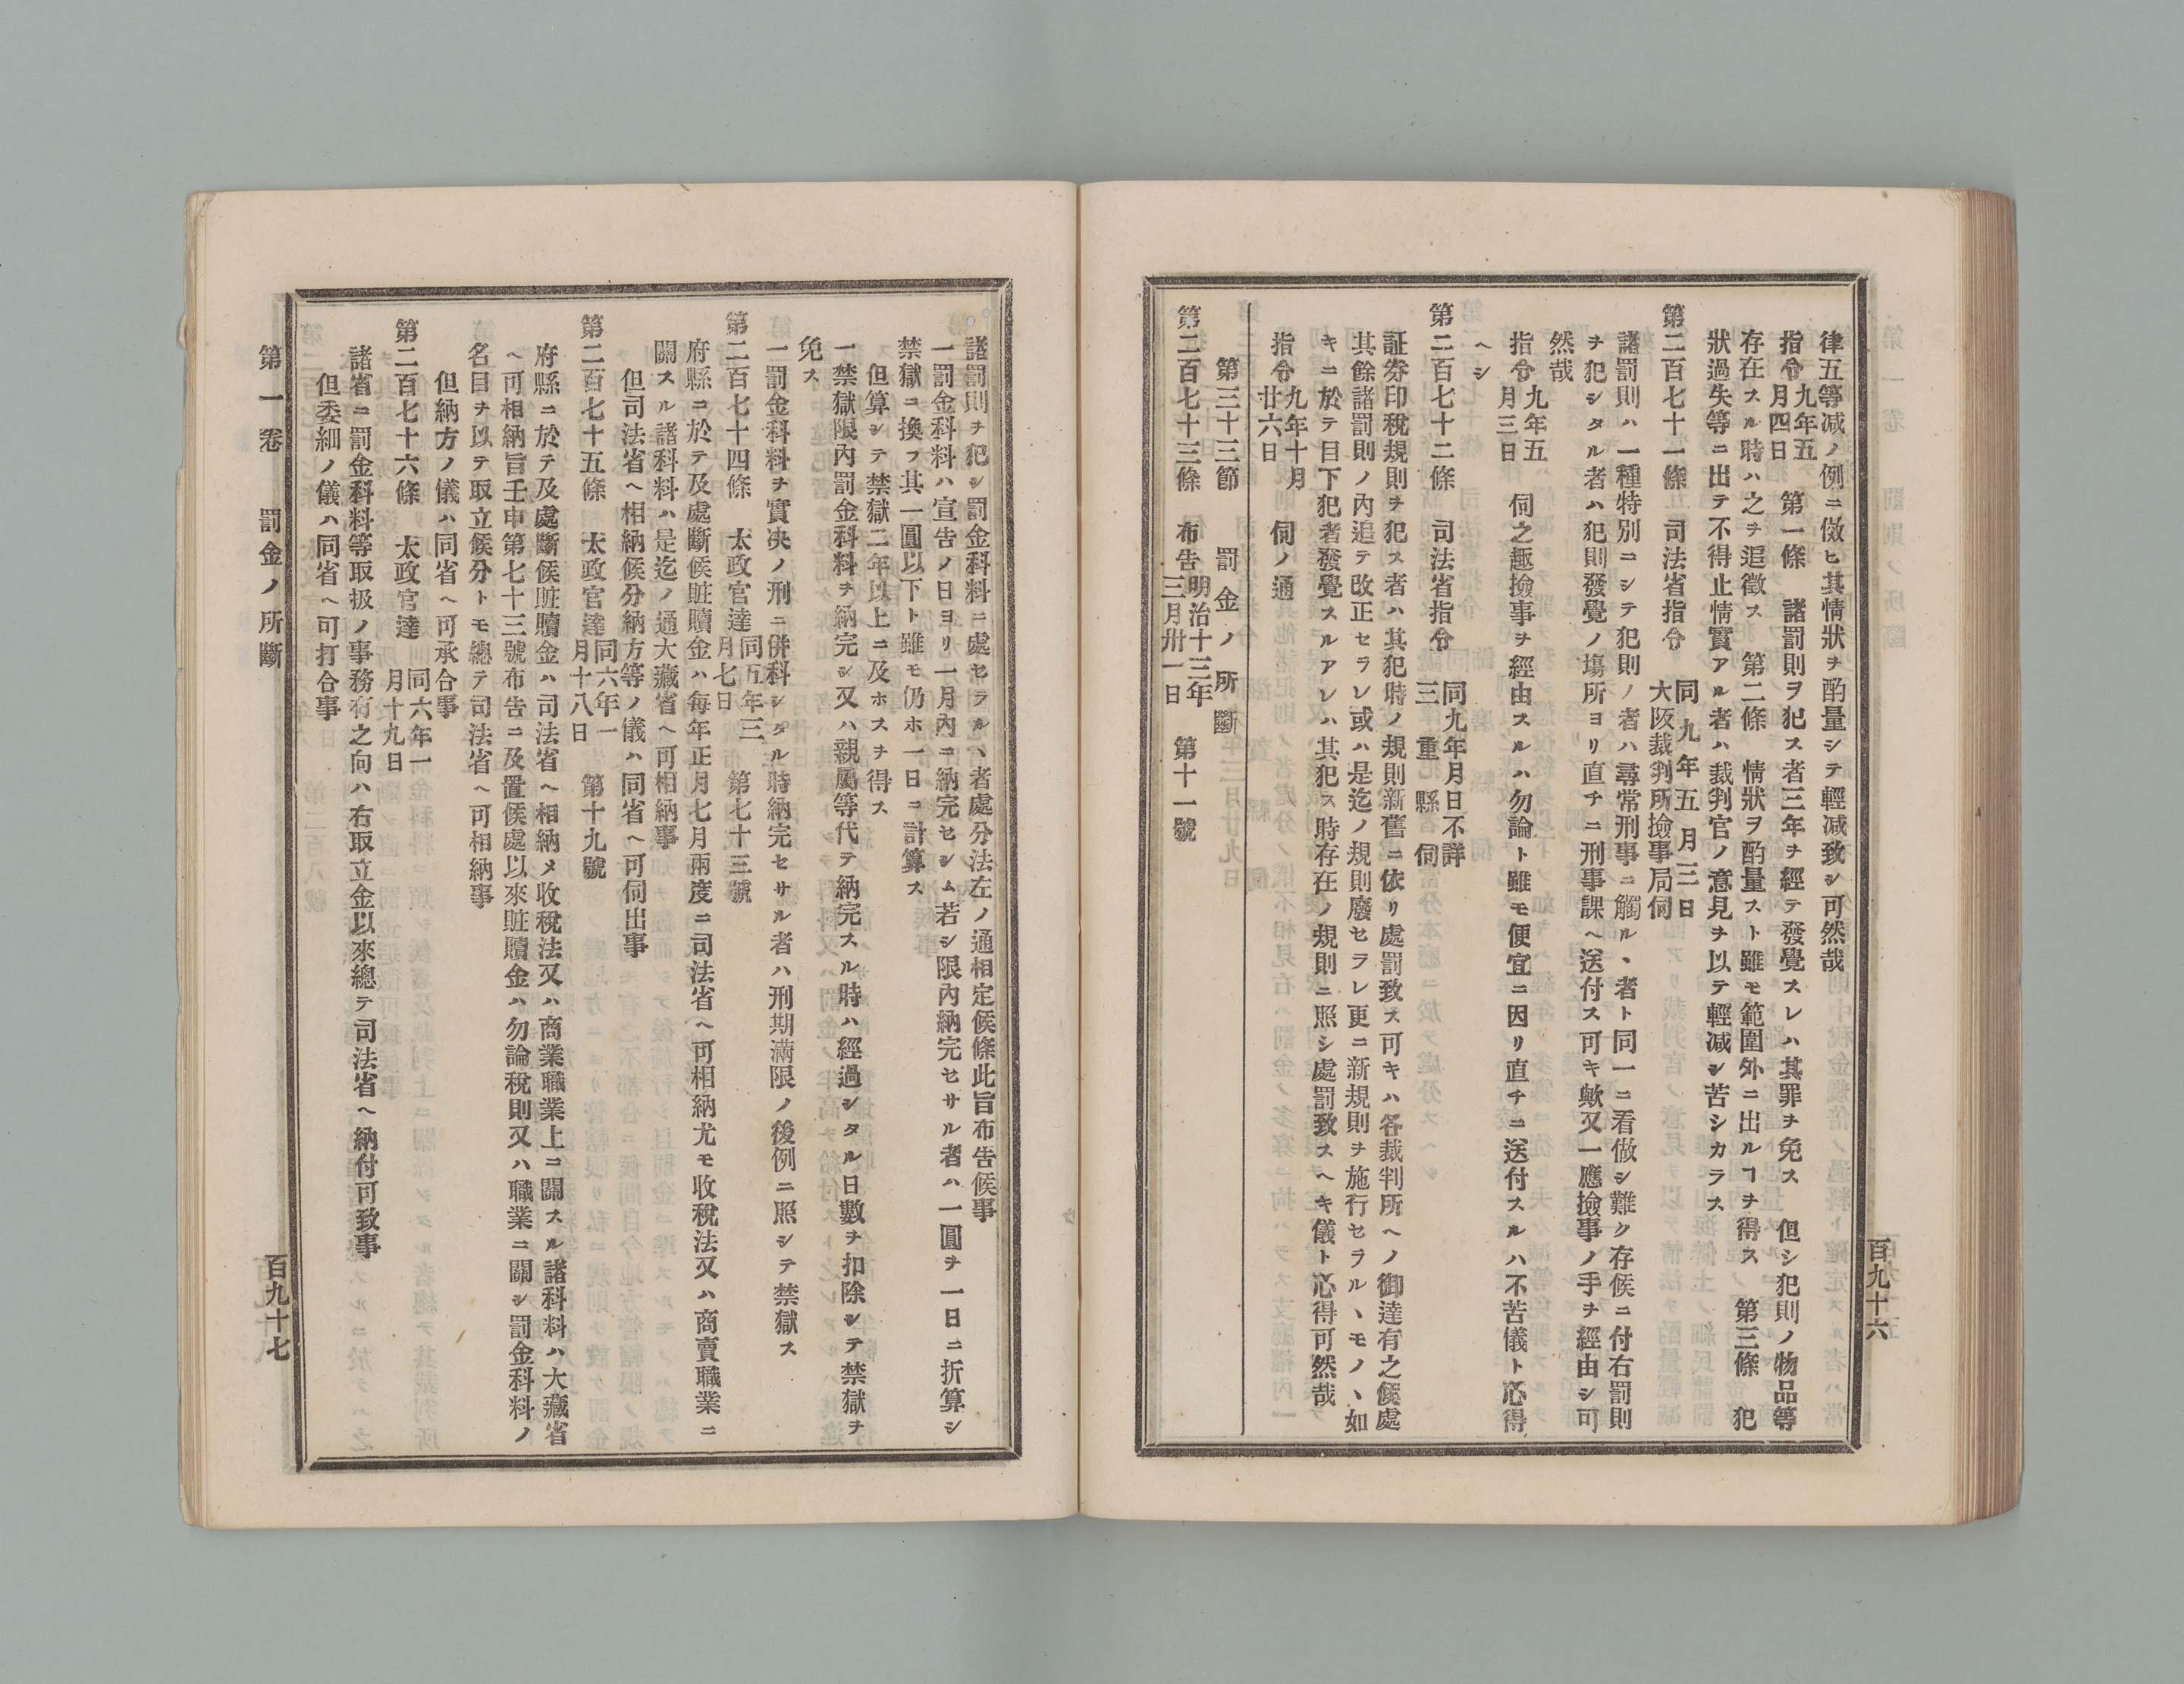 律五等减ノ例ニ倣ヒ其情狀ヲ酌量シテ輕减致シ可然哉
指令九年五月四日 第一條 諸罰則ヲ犯ス者三年ヲ經テ發覺スレハ其罪ヲ免ス 但シ犯則ノ物品等
存在スル時ハ之ヲ追徵ス 第二條 情狀ヲ酌量スト雖モ範圍外ニ出ルヿヲ得ス 第三條 犯
狀過失等ニ出テ不得止情實アル者ハ裁判官ノ意見ヲ以テ輕减シ苦シカラス
第二百七十一條 司法省指令 同九年五月三日大阪裁判所撿事局伺
諸罰則ハ一種特別ニシテ犯則ノ者ハ尋常刑事ニ觸ルヽ者ト同一ニ看做シ難ク存候ニ付右罰則
ヲ犯シタル者ハ犯則發覺ノ塲所ヨリ直チニ刑事課ヘ送付ス可キ歟又一應撿事ノ手ヲ經由シ可
然哉
指令九年五月三日 伺之趣撿事ヲ經由スルハ勿論ト雖モ便宜ニ因リ直チニ送付スルハ不苦儀ト心得
ヘシ
第二百七十二條 司法省指令 同九年月日不詳三重縣伺
証券印稅規則ヲ犯ス者ハ其犯時ノ規則新舊ニ依リ處罰致ス可キハ各裁判所ヘノ御達有之候處
其餘諸罰則ノ內追テ改正セラレ或ハ是迄ノ規則廢セラレ更ニ新規則ヲ施行セラルヽモノヽ如
キニ於テ目下犯者發覺スルアレハ其犯ス時存在ノ規則ニ照シ處罰致スヘキ儀ト心得可然哉
指令九年十月廿六日 伺ノ通
第三十三節 罰金ノ所斷
第二百七十三條 布告明治十三年三月卅一日 第十一號
百九十六
諸罰則ヲ犯シ罰金科料ニ處セラルヽ者處分法左ノ通相定候條此旨布告候事
一罰金科料ハ宣告ノ日ヨリ一月內ニ納完セシム若シ限內納完セサル者ハ一圓ヲ一日ニ折算シ
禁獄ニ換フ其一圓以下ト雖モ仍ホ一日ニ計算ス
但算シテ禁獄二年以上ニ及ホスヲ得ス
一禁獄限內罰金科料ヲ納完シ又ハ親屬等代テ納完スル時ハ經過シタル日數ヲ扣除シテ禁獄ヲ
免ス
一罰金科料ヲ實决ノ刑ニ併科シタル時納完セサル者ハ刑期滿限ノ後例ニ照シテ禁獄ス
第二百七十四條 太政官達同五年三月七日 第七十三號
府縣ニ於テ及處斷候贓贖金ハ每年正月七月兩度ニ司法省ヘ可相納尤モ收稅法又ハ商賣職業ニ
關スル諸科料ハ是迄ノ通大藏省ヘ可相納事
但司法省ヘ相納候分納方等ノ儀ハ同省ヘ可伺出事
第二百七十五條 太政官達同六年一月十八日 第十九號
府縣ニ於テ及處斷候贓贖金ハ司法省ヘ相納メ收稅法又ハ商業職業上ニ關スル諸科料ハ大藏省
ヘ可相納旨壬申第七十三號布告ニ及置候處以來贓贖金ハ勿論稅則又ハ職業ニ關シ罰金科料ノ
名目ヲ以テ取立候分トモ總テ司法省ヘ可相納事
但納方ノ儀ハ同省ヘ可承合事
第二百七十六條 太政官達 同六年一月十九日
諸省ニ罰金科料等取扱ノ事務有之向ハ右取立金以來總テ司法省ヘ納付可致事
但委細ノ儀ハ同省ヘ可打合事
第一卷 罰金ノ所斷
百九十七